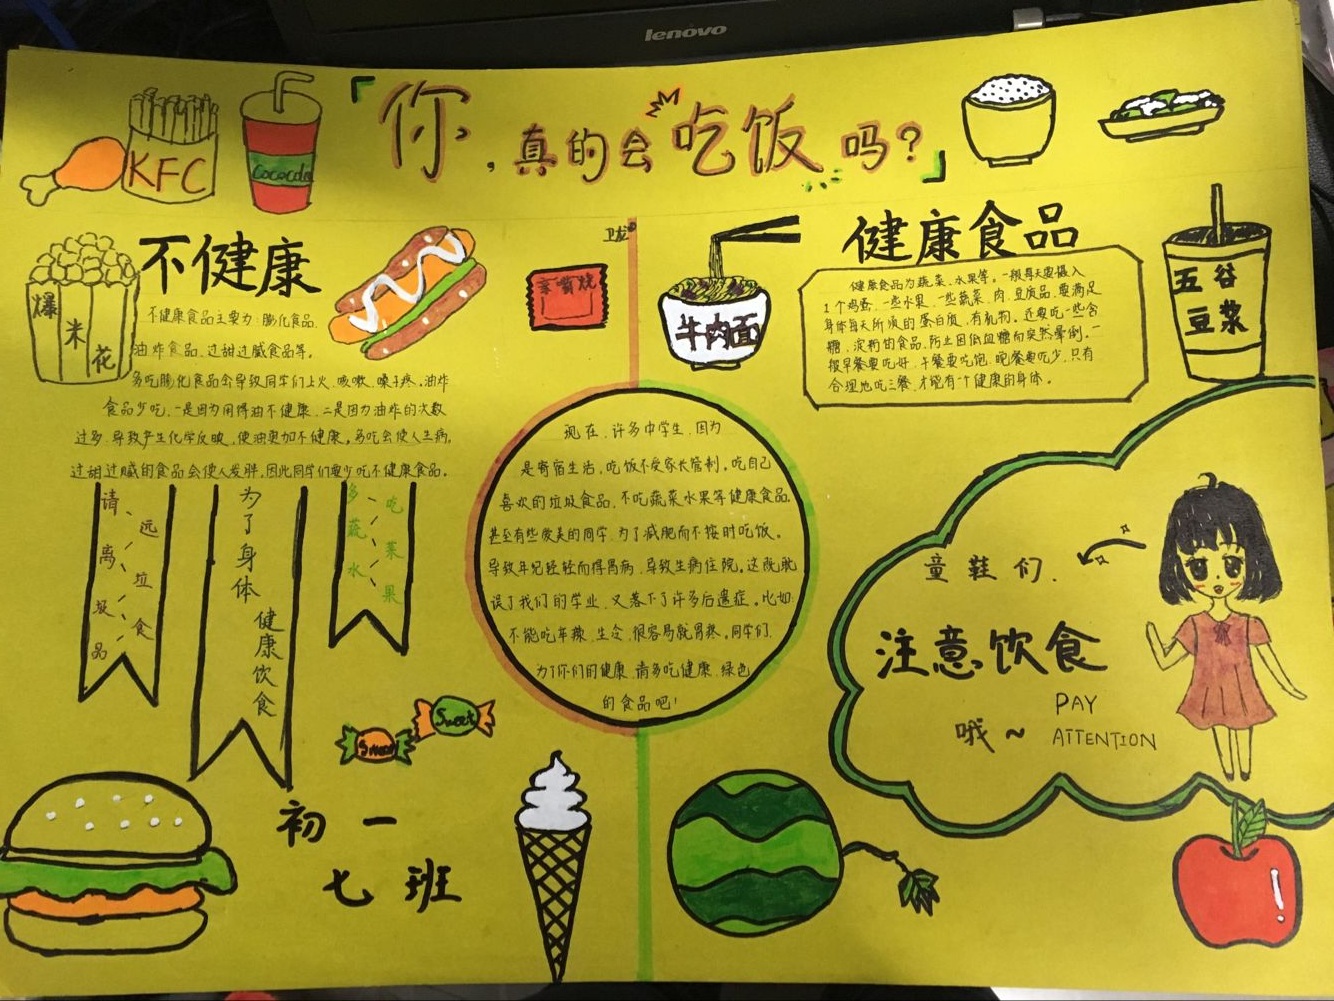 lenovo
「你,真的会吃饭吗?」
KFC
Cococola
不健康
爆米花
不健康食品主要为:膨化食品、
油炸食品、过甜过腻食品等。
多吃膨化食品会导致同学们上火、咳嗽、嗓子疼。油炸
食品少吃,一是因为用得油不健康,二是因为油炸的次数
过多,导致产生化学反映,使油更加不健康,多吃会使人生病,
过甜过腻的食品会使人发胖,因此同学们要少吃不健康食品。
卫龙
亲嘴烧
牛肉面
健康食品
健康食品为蔬菜、水果等。一般每天要摄入
1个鸡蛋、一些水果、一些蔬菜、肉、豆质品,要满足
身体每天所须的蛋白质、有机物。还要吃一些含
糖、淀粉的食品,防止因低血糖而突然晕倒。一
般早餐要吃好,午餐要吃饱,晚餐要吃少,只有
合理地吃三餐,才能有一个健康的身体。
五谷
豆浆
现在,许多中学生,因为
是寄宿生活,吃饭不受家长管制,吃自己
喜欢的垃圾食品,不吃蔬菜水果等健康食品,
甚至有些爱美的同学,为了减肥而不按时吃饭。
导致年纪轻轻而得胃病,导致生病住院。这既耽
误了我们的学业,又落下了许多后遗症。比如:
不能吃辛辣、生冷,很容易就胃疼。同学们,
为了你们的健康,请多吃健康、绿色
的食品吧!
请远离垃圾食品
为了身体健康饮食
多吃蔬菜水果
童鞋们,
注意饮食
哦~
PAY
ATTENTION
Sweet
Sweet
初一
七班